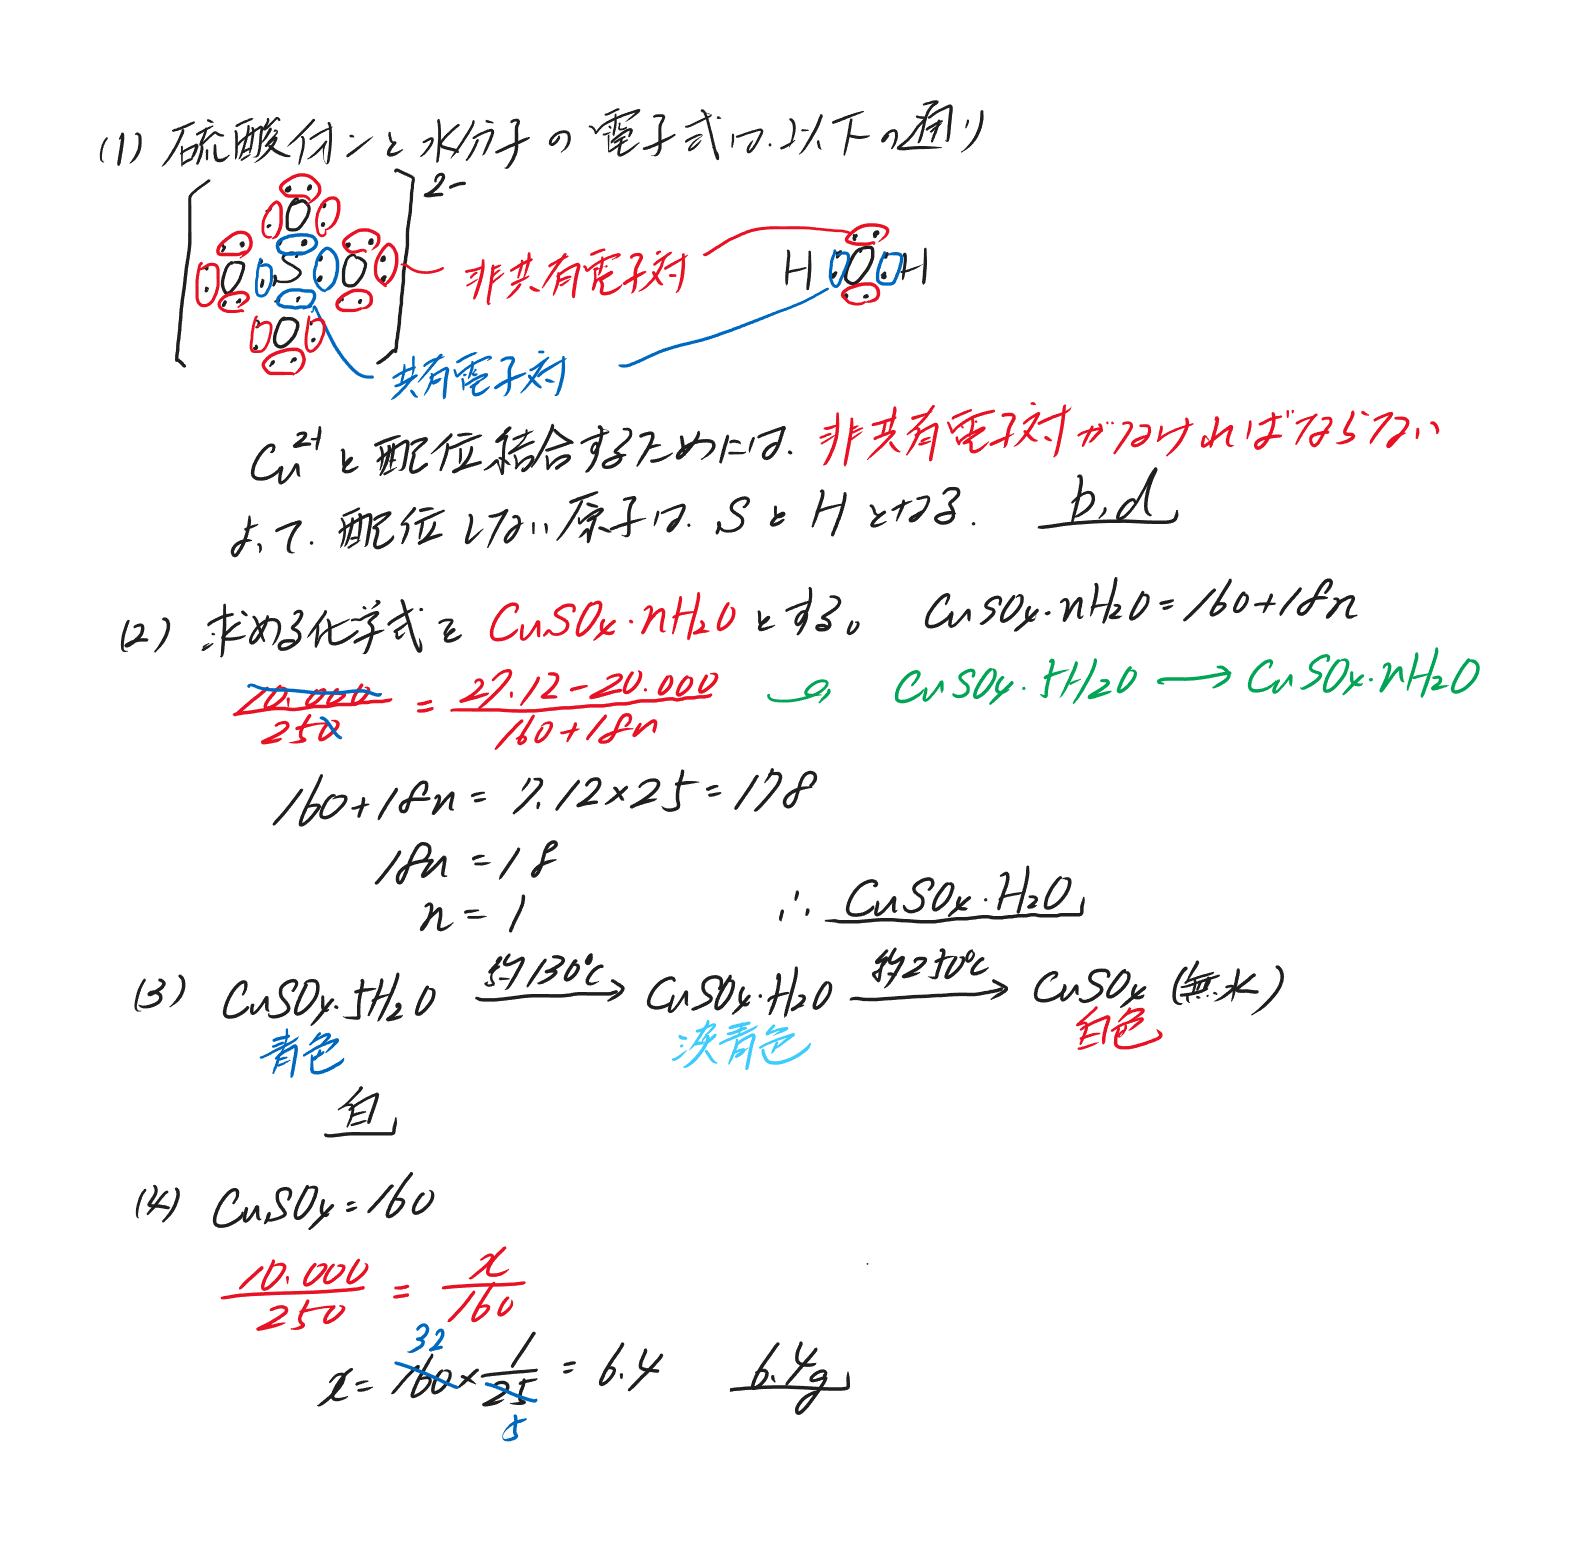 (1) 硫酸イオンと水分子の電子式は、以下の通り
[O O S O O]2-
非共有電子対 H O H
共有電子対
Cu2+と配位結合するためには、非共有電子対がなければならない
よって、配位しない原子は、SとHとなる。 b, d
(2) 求める化学式を CuSO4・nH2O とする。 CuSO4・nH2O = 160+18n
10.000/250 = (27.12-20.000)/(160+18n) CuSO4・5H2O → CuSO4・nH2O
160+18n = 7.12×25 = 178
18n = 18
n = 1 ∴ CuSO4・H2O
(3) CuSO4・5H2O 約130℃→ CuSO4・H2O 約250℃→ CuSO4 (無水)
青色 淡青色 白色
白
(4) CuSO4 = 160
10.000/250 = x/160
32
x = 160 × 1/25 = 6.4 6.4g
5